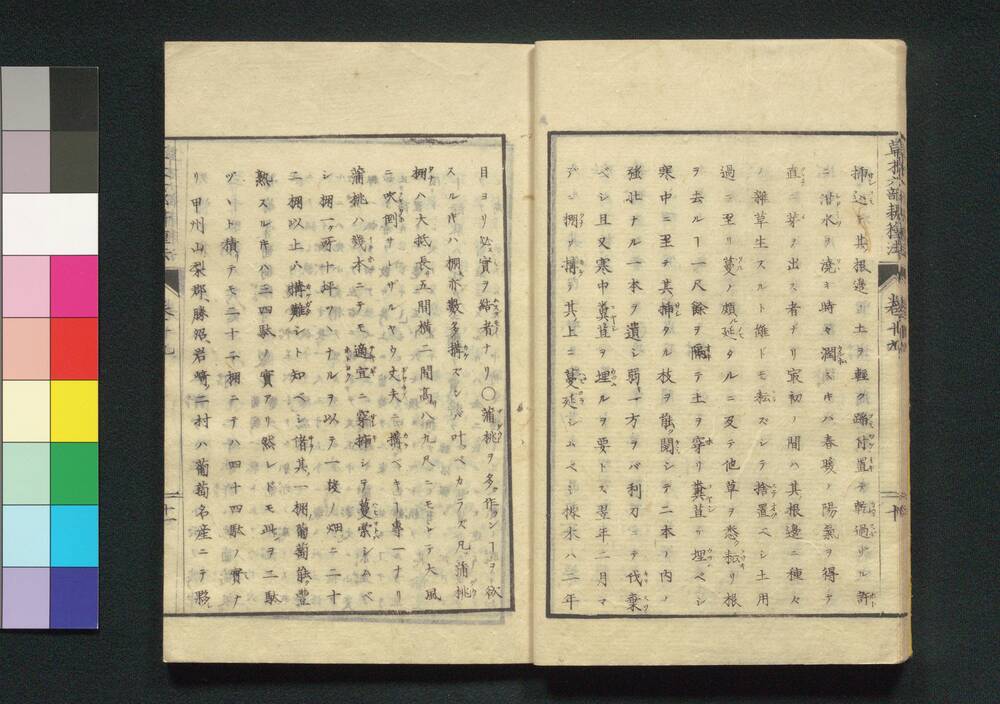 草木六部耕種法 巻十九 二十
挿込ミ其根邊ノ土ヲ輕ク踏付置キ乾過ザル許
ニ泔水ヲ澆キ時々潤スキハ春暖ノ陽氣ヲ得テ
直ニ芽ヲ出ス者ナリ最初ノ間ハ其根邊ニ種々
ノ雜草生スルト雖ドモ耘ズシテ捨置ベシ土用
過ニ至リ蔓ノ頗延タルニ及テ他草ヲ悉ク耘リ根
ヲ去ルヿ一尺餘ヲ隔テ土ヲ穿リ糞苴ヲ埋ベシ
寒中ニ至テ其挿タル枝ヲ能ク閲シテ二本ノ内ノ
強壮ナル一本ヲ遺シ弱キ一方ヲバ利刀ニテ伐棄
ベシ且又寒中糞苴ヲ埋ルヲ要トス翌年二月マ
デニ棚ヲ搆ヘ其上ニ蔓延シムベシ揷木ハ二年
目ヨリ必實ヲ結者ナリ〇蒲桃ヲ多ク作ンヿヲ欲
スルキハ棚亦數多搆ズンバ叶ベカラズ凡蒲桃
棚ハ大抵長五間横二間高八九尺ニモシテ大風
ニ吹倒レザルヤウ丈夫ニ搆ベキヿ專一ナリ
蒲桃ハ幾本ニテモ適宜ニ穿挿シテ蔓縈シムベ
シ棚一ケ所十坪ヅヽナルヲ以テ一棱ノ畑ニ二十
二棚以上ハ搆難シト知ベシ偖其一棚葡萄能ク豐
熟スルキハ三四駄ノ實アリ然レドモ此ヲ二駄
ヅヽト積リテモ二十二棚ニテハ四十四駄ノ實ナ
リ甲州山梨郡勝沼、岩崎ノ二村ハ葡萄名産ニテ務
二十一